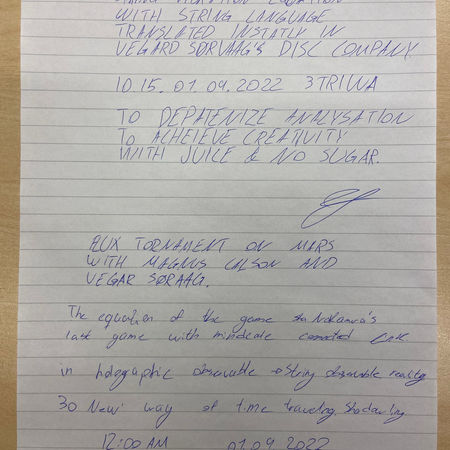 WITH STRING LANGUAGE
TRANSLATED INSTATLY IN
VEGARD SØRVAAG'S DISC COMPANY.
10.15. 01.09.2022 3TRIWA
TO DEPATENIZE ANALYSATION
TO ACHEIEVE CREATIVITY
WITH JUICE & NO SUGAR.
TORNAMENT ON MARS
WITH MAGNUS CALSON AND
VEGAR SØRAAG.
The equation of the game Nakamura's
last game with mindcode
in holographic observable string observable reality
30 New way of time traveling, Shadowling
12:00 AM 01.09 2022